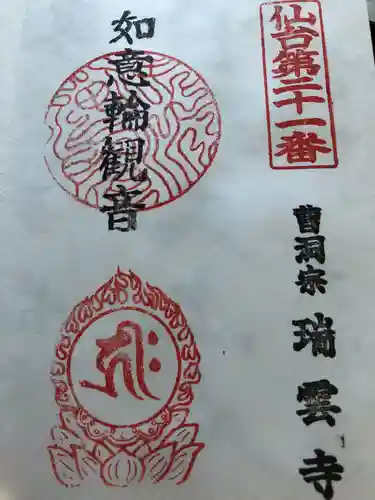 仙台第二十一番
如意輪観音
曹洞宗 瑞雲寺